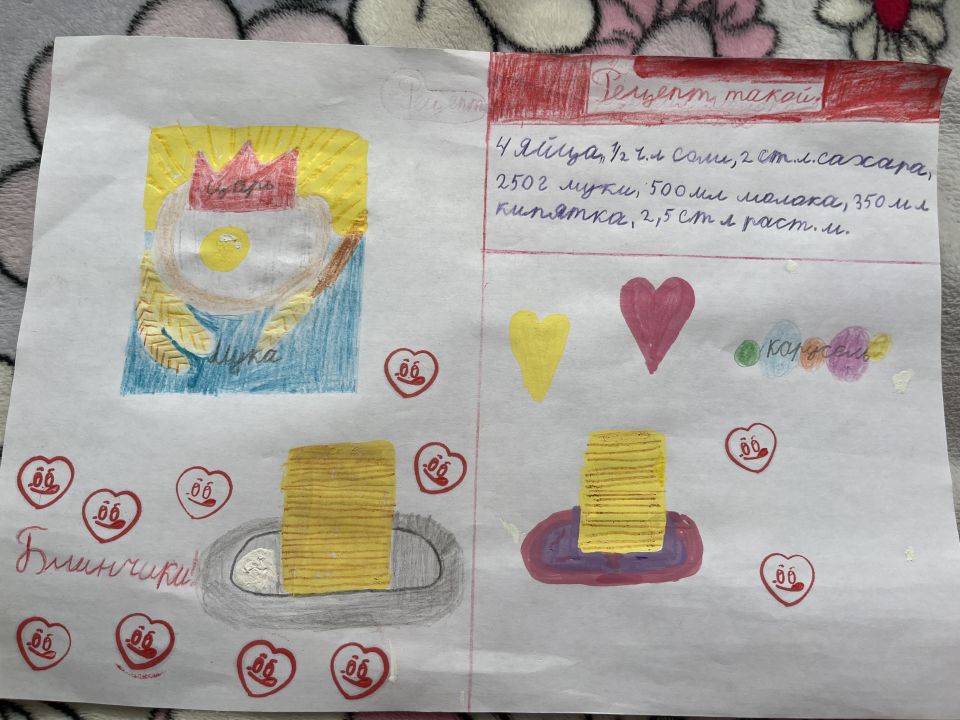 Рецепт
Рецепт такой:
4 яйца, 1/2 ч.л соли, 2 ст.л. сахара,
250 г муки, 500 мл молока, 350 мл
кипятка, 2,5 ст л раст. м.
Царь
Мука
Карусель
Блинчики!